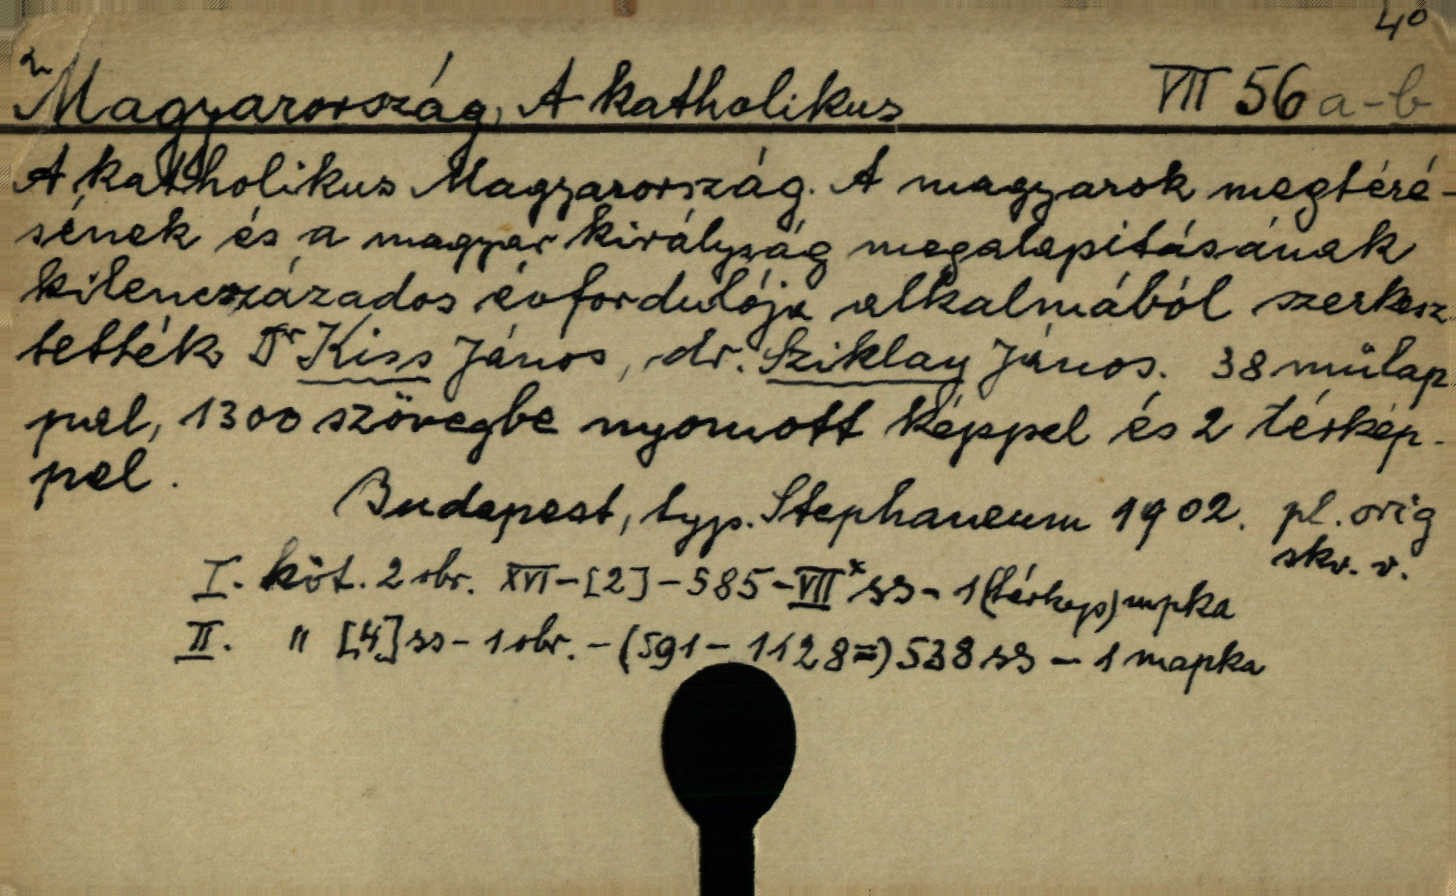 4°
Magyarország, A katholikus VII 56 a-b
A katholikus Magyarország. A magyarok megtéré-
sének és a magyar királyság megalapitásának
kilencszázados évfordulója alkalmából szerkesz
tették Dr Kiss János, dr. Sziklay János. 38 műlap
pal, 1300 szövegbe nyomott képpel és 2 térkép-
pel.
Budapest, typ. Stephaneum 1902. pl. orig
skv. v.
I. köt. 2 obr. XVI-[2]-585-VII x ss - 1 (térkep) mpka
II. " [4] ss - 1 obr. - (591-1128=) 538 ss - 1 mapka